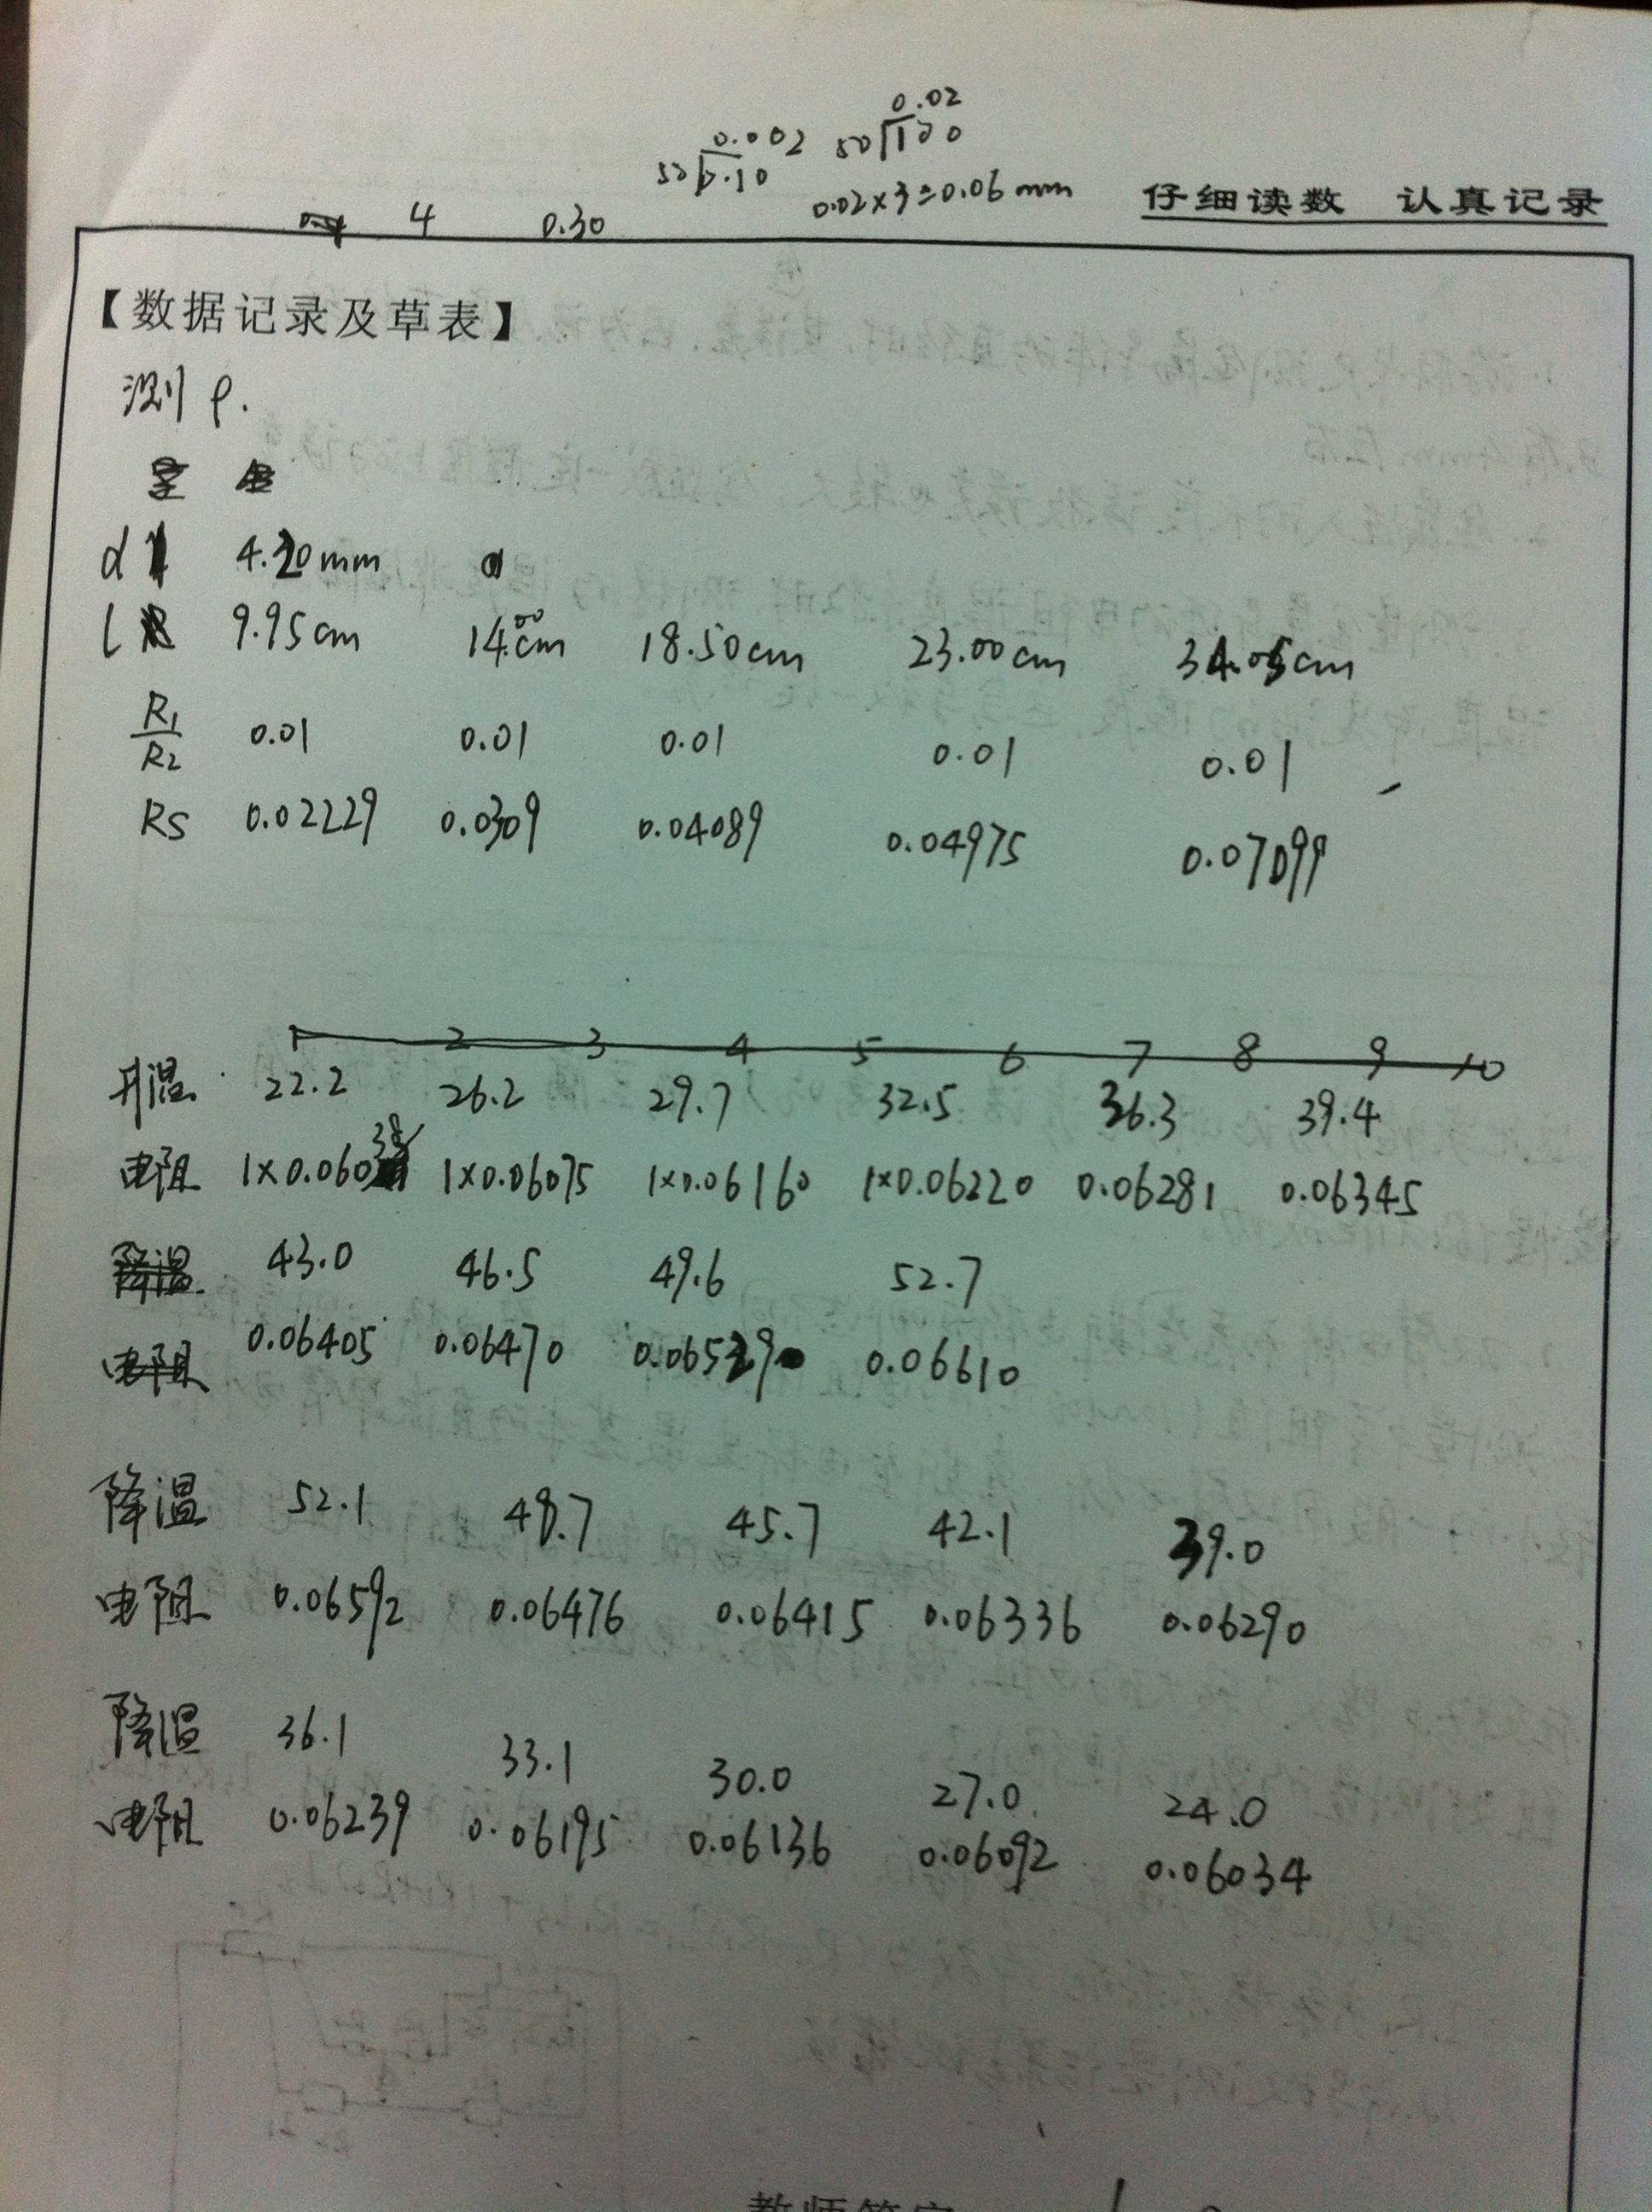 0.002
50 0.10
0.02
50 100
0.02×3=0.06mm
仔细读数 认真记录
4 0.30
【数据记录及草表】
测ρ.
d 4.20mm
l 9.95cm 14.00cm 18.50cm 23.00cm 34.05cm
R1/R2 0.01 0.01 0.01 0.01 0.01
RS 0.02229 0.0309 0.04089 0.04975 0.07099
1 2 3 4 5 6 7 8 9 10
升温 22.2 26.2 29.7 32.5 36.3 39.4
电阻 1×0.06038 1×0.06075 1×0.06160 1×0.06220 0.06281 0.06345
降温 43.0 46.5 49.6 52.7
电阻 0.06405 0.06470 0.06529 0.06610
降温 52.1 48.7 45.7 42.1 39.0
电阻 0.06592 0.06476 0.06415 0.06336 0.06290
降温 36.1 33.1 30.0 27.0 24.0
电阻 0.06239 0.06195 0.06136 0.06092 0.06034